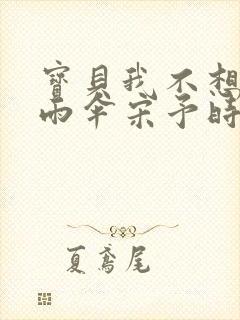 寶貝我不想
雨傘宋予時
夏鳶尾